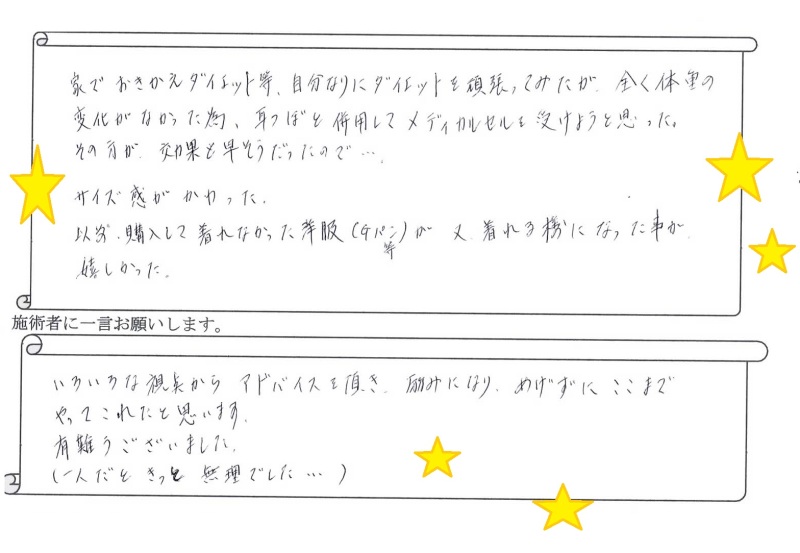 家でおきかえダイエット等、自分なりにダイエットを頑張ってみたが、全く体重の
変化がなかった為、耳つぼと併用してメディカルセルも受けようと思った。
その方が、効果も早そうだったので…。
サイズ感がかわった。
以前、購入して着れなかった洋服(Gパン等)が又、着れる様になった事が、
嬉しかった。
施術者に一言お願いします。
いろいろな視点からアドバイスを頂き、励みになり、めげずにここまで
やってこれたと思います。
有難うございました。
(一人だときっと無理でした…)